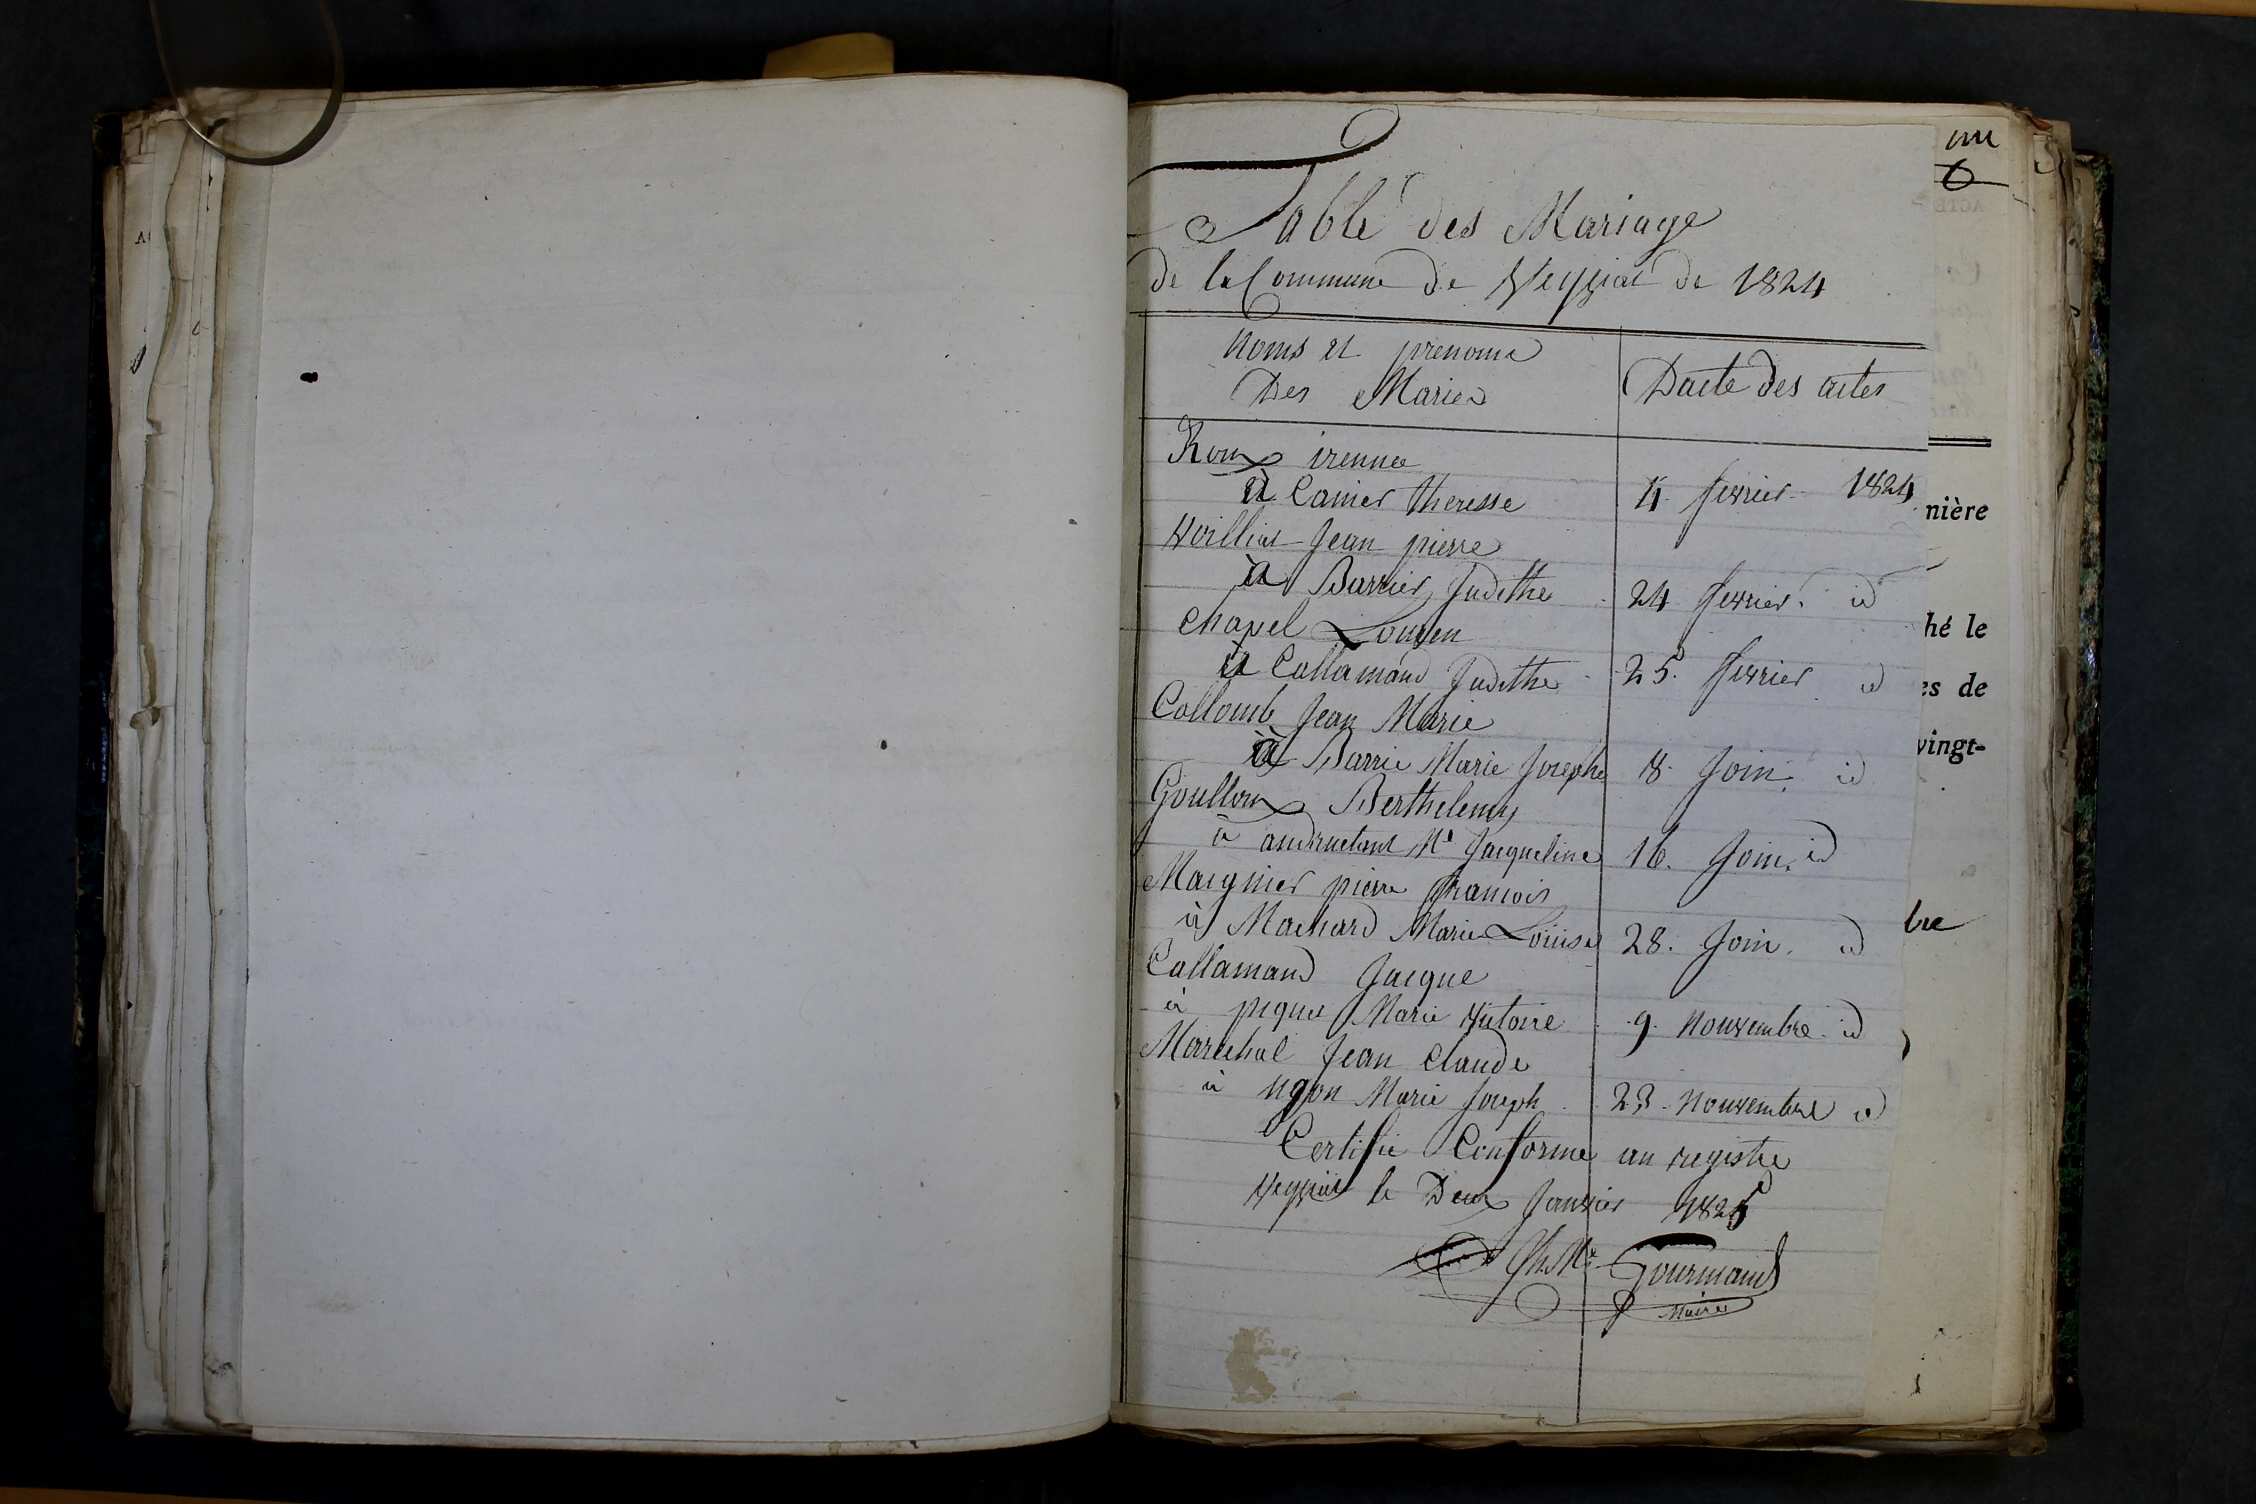 Table des Mariage
de la Commune de Veyziat de 1824
Noms et prenoms
Des Mariés
Dacte des actes
Roux irennee
à Canier theresse 4 fevrier 1824
Voilliat Jean pierre
à Barrier Judithe 24 fevrier id
chapel
à Callamand Judithe 25 fevrier id
Collomb Jean Marie
à Barrie Marie Josephe 18 Join id
Goulloux Berthelemy
à Me Jacqueline 16 Join id
Maignier pierre francois
à Machard Marie Louise 28 Join id
Callamand Jacque
à piquet Marie Victoire 9 Nouvembre id
Marechal Jean claude
à ugon Marie Joseph 23 Nouvembre id
Certifié Conforme au registre
Veyziat le Deux Janvier 1825
Gourmand
Maire
mière
hé le
es de
vingt-
bre